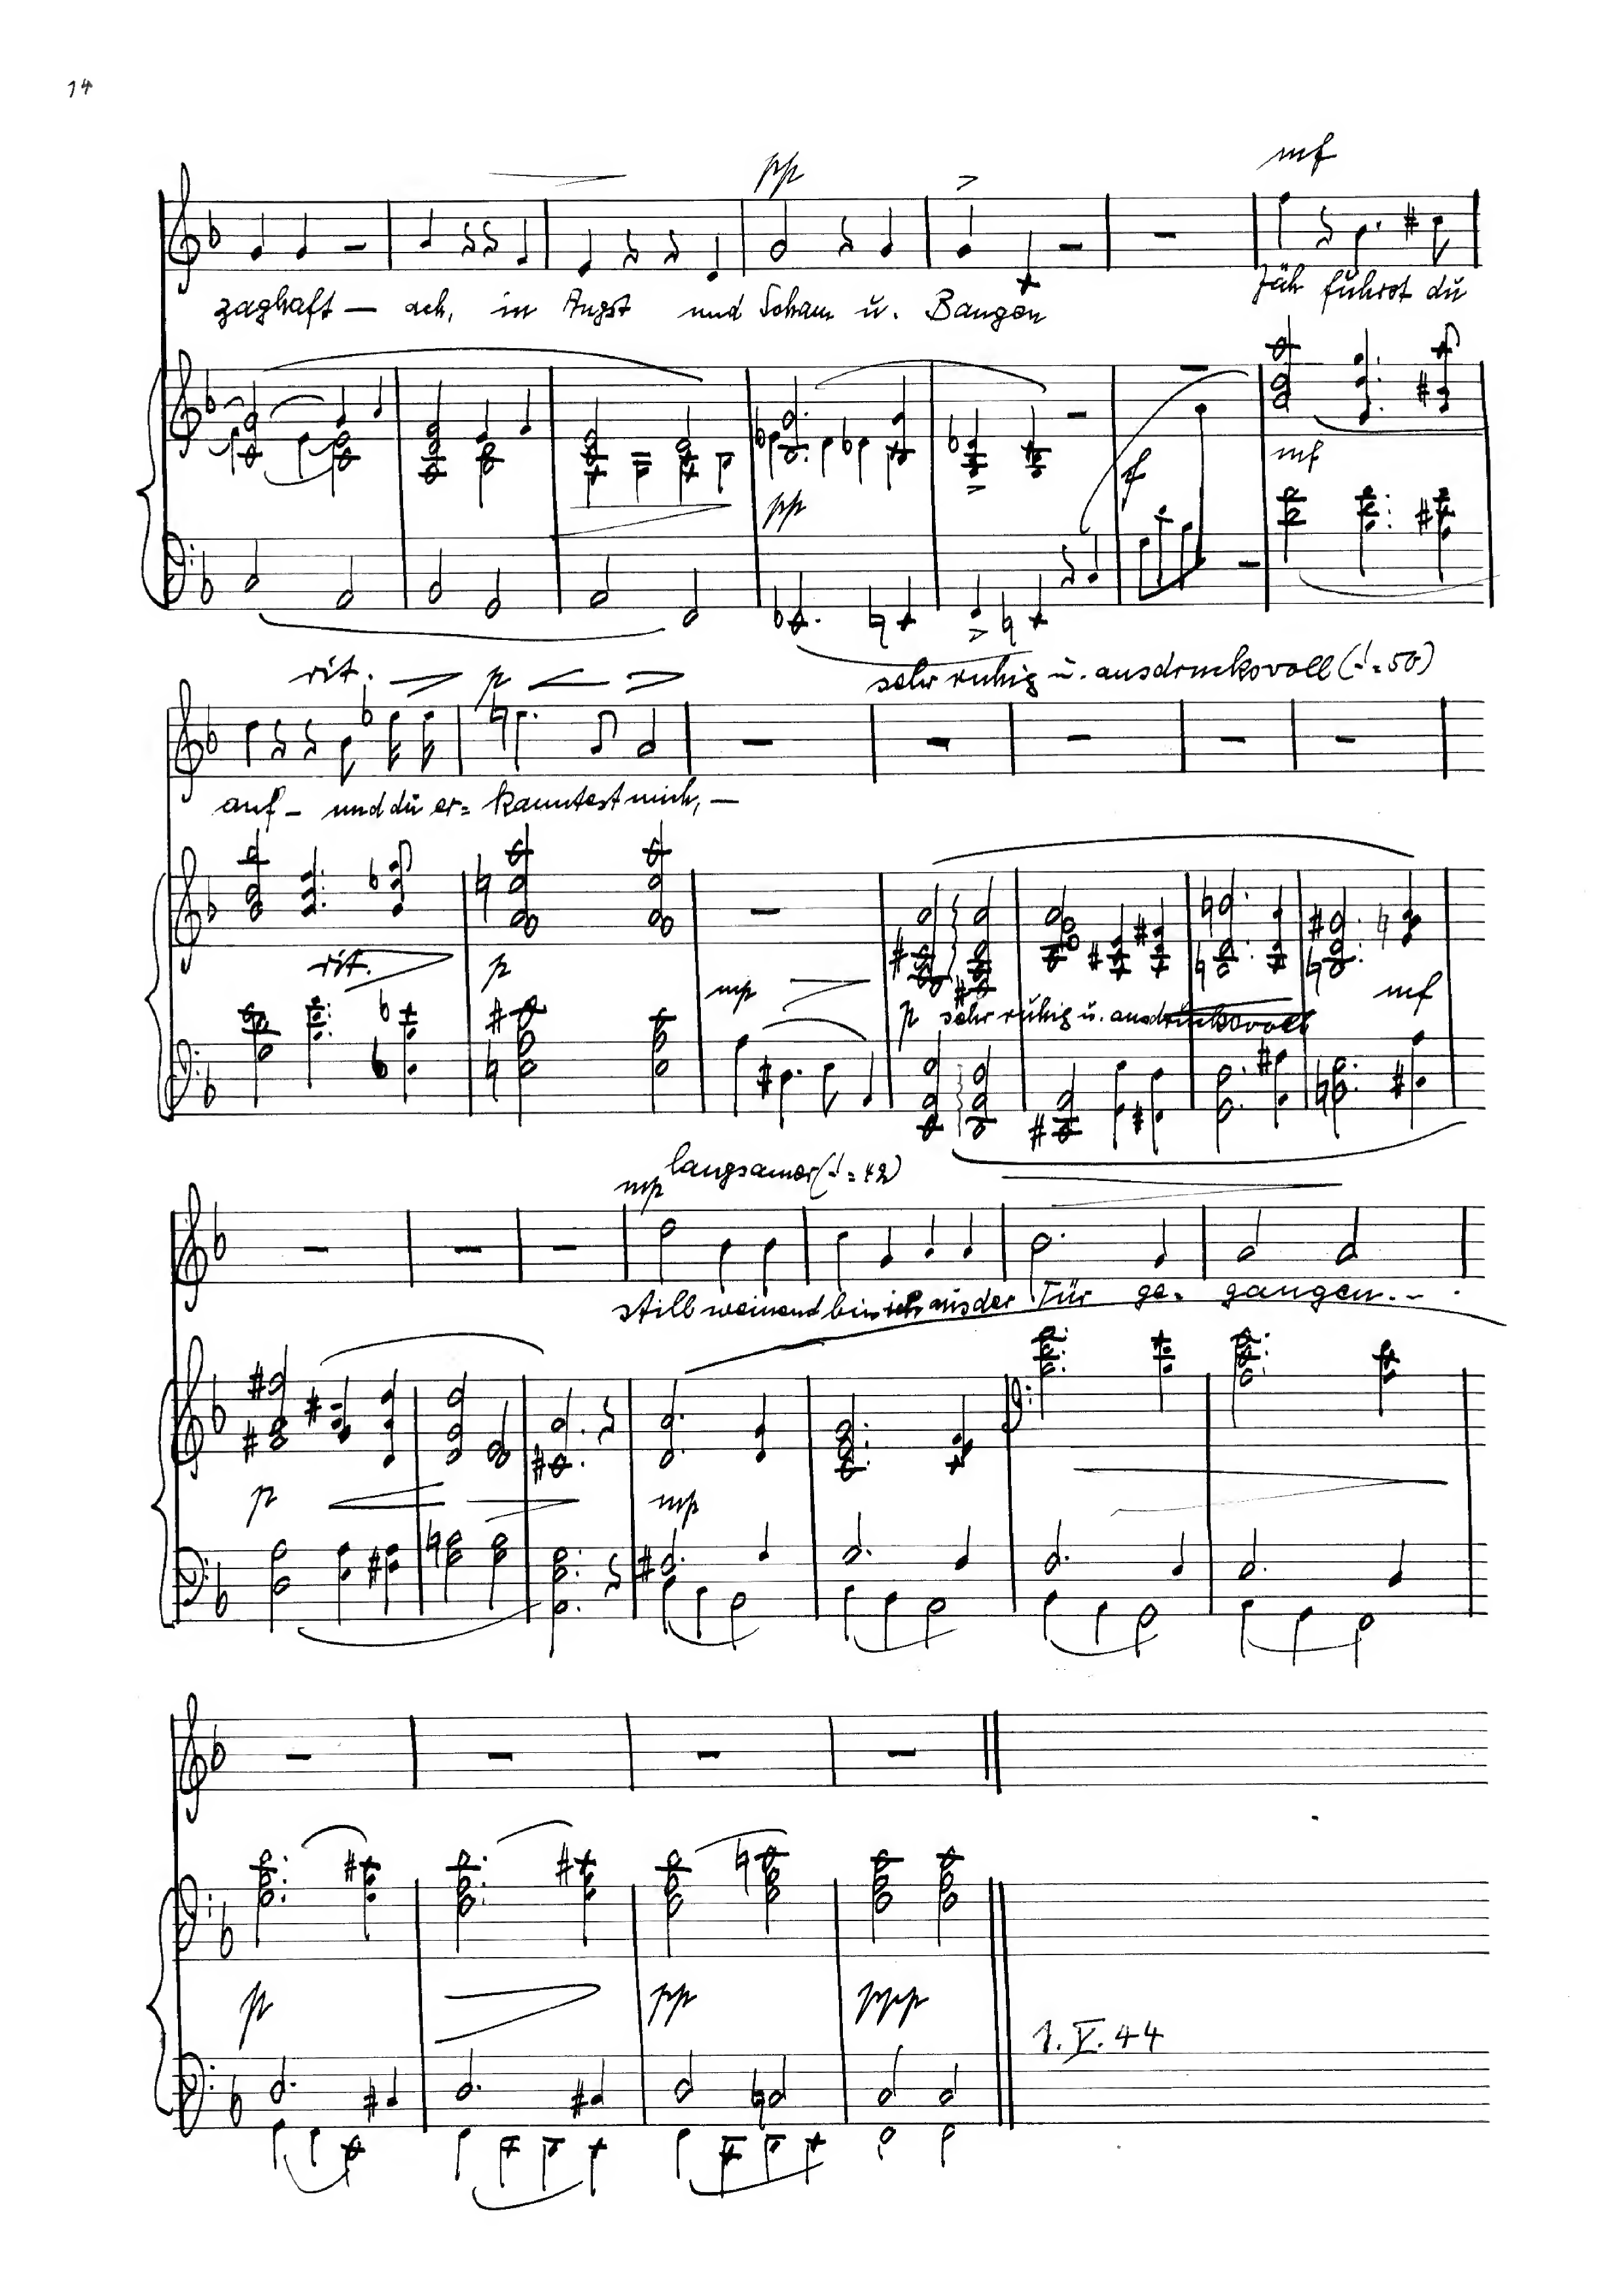 14
pp
mf
zaghaft — ach, in Angst und Scham u. Bangen Jäh fuhrst du
mf
f
pp
sehr ruhig u. ausdrucksvoll (♩=50)
rit. p
auf – und du er= kanntest mich, —
rit. p
mp
mf
p sehr ruhig u. ausdrucksvoll
langsamer (♩=42)
mp
still weinend bin ich aus der Tür ge- gangen. -
p mp
p pp ppp
1. V. 44